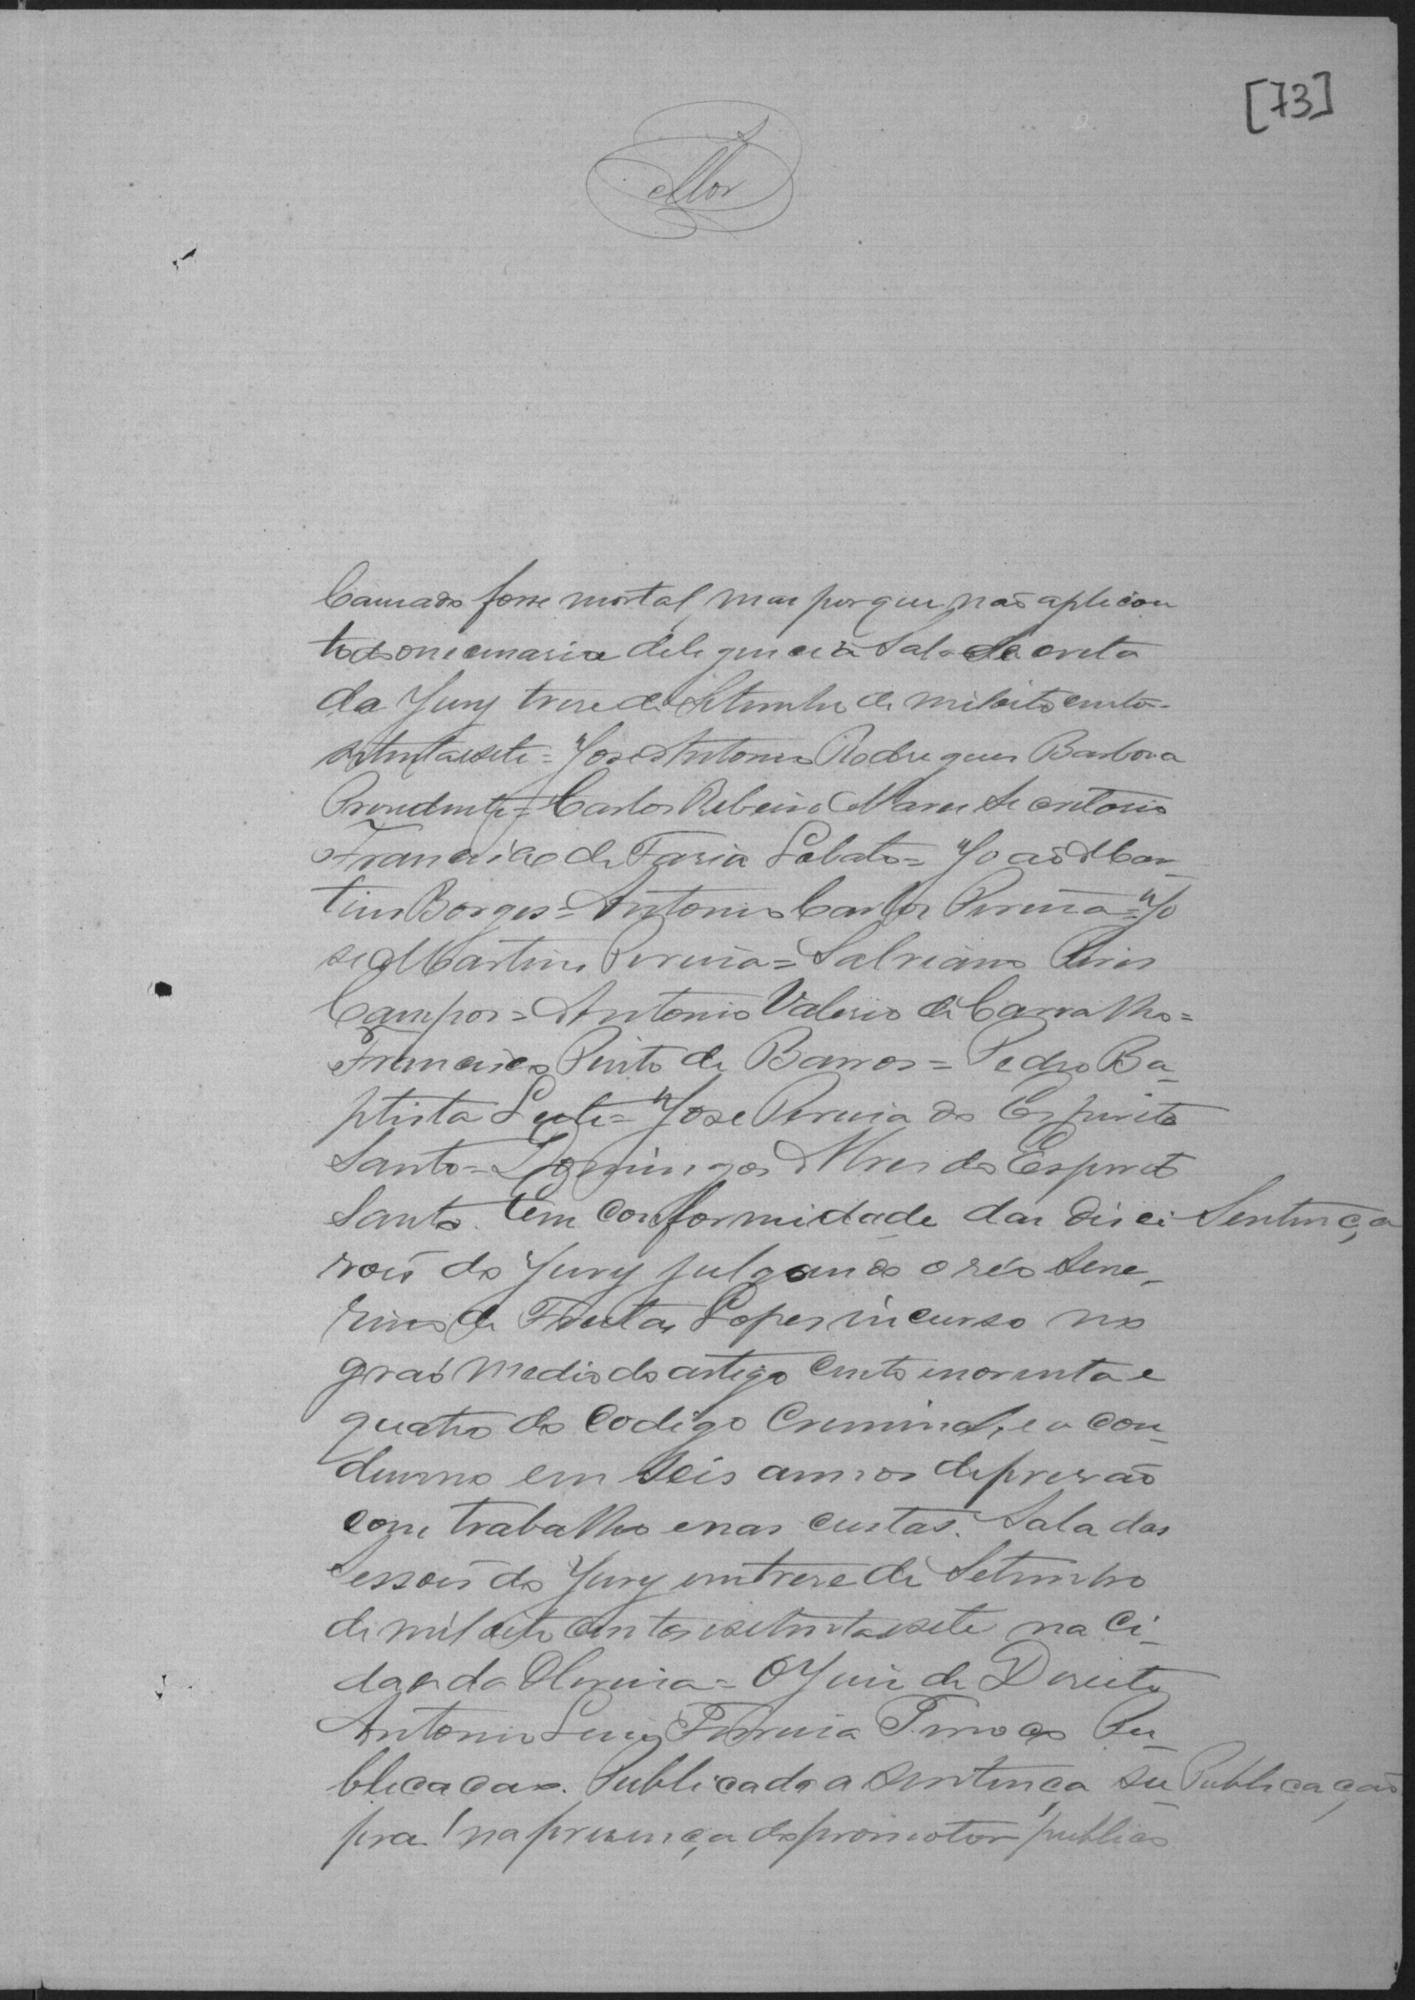 [73]
Causado fosse mortal, mas porque não aplicou
todo onecessaria deligencia Sala Secreta
da Jury trese de Setembro de mil oito centos
setenta esete = José Antonio Rodrigues Barbosa
Presidente = Carlos Ribeiro Naves Secretario
Francisco de Faria Lobato = João Mar-
tins Borges = Antonio Carlos Pereira = Jo
se Martins Pereira = Salviano Pires
Campos = Antonio Valerio de Carvalho =
Francisco Pinto de Barros = Pedro Ba-
ptista Leite = José Pereira do Espirito
Santo = Domingos Alves do Espirito
Santo. Em conformidade das Deci Sentença
soès do Jury julgando o réo Seve-
rino de Freitas Lopes incurso no
grao medio do artigo cento enoventa e
quatro do Codigo Criminal, e o con-
demno em seis annos de presão
com trabalho enas custas. Sala das
Sessoès do Jury em trese de Setembro
de mil oito centos esetenta esete na Ci-
dade da Oliveira = O Juis de Direito
Antonio Luis Ferreira Tinoco Pu-
blicacão. Publicada a sentença su Publicação
pra na presença do promotor publico